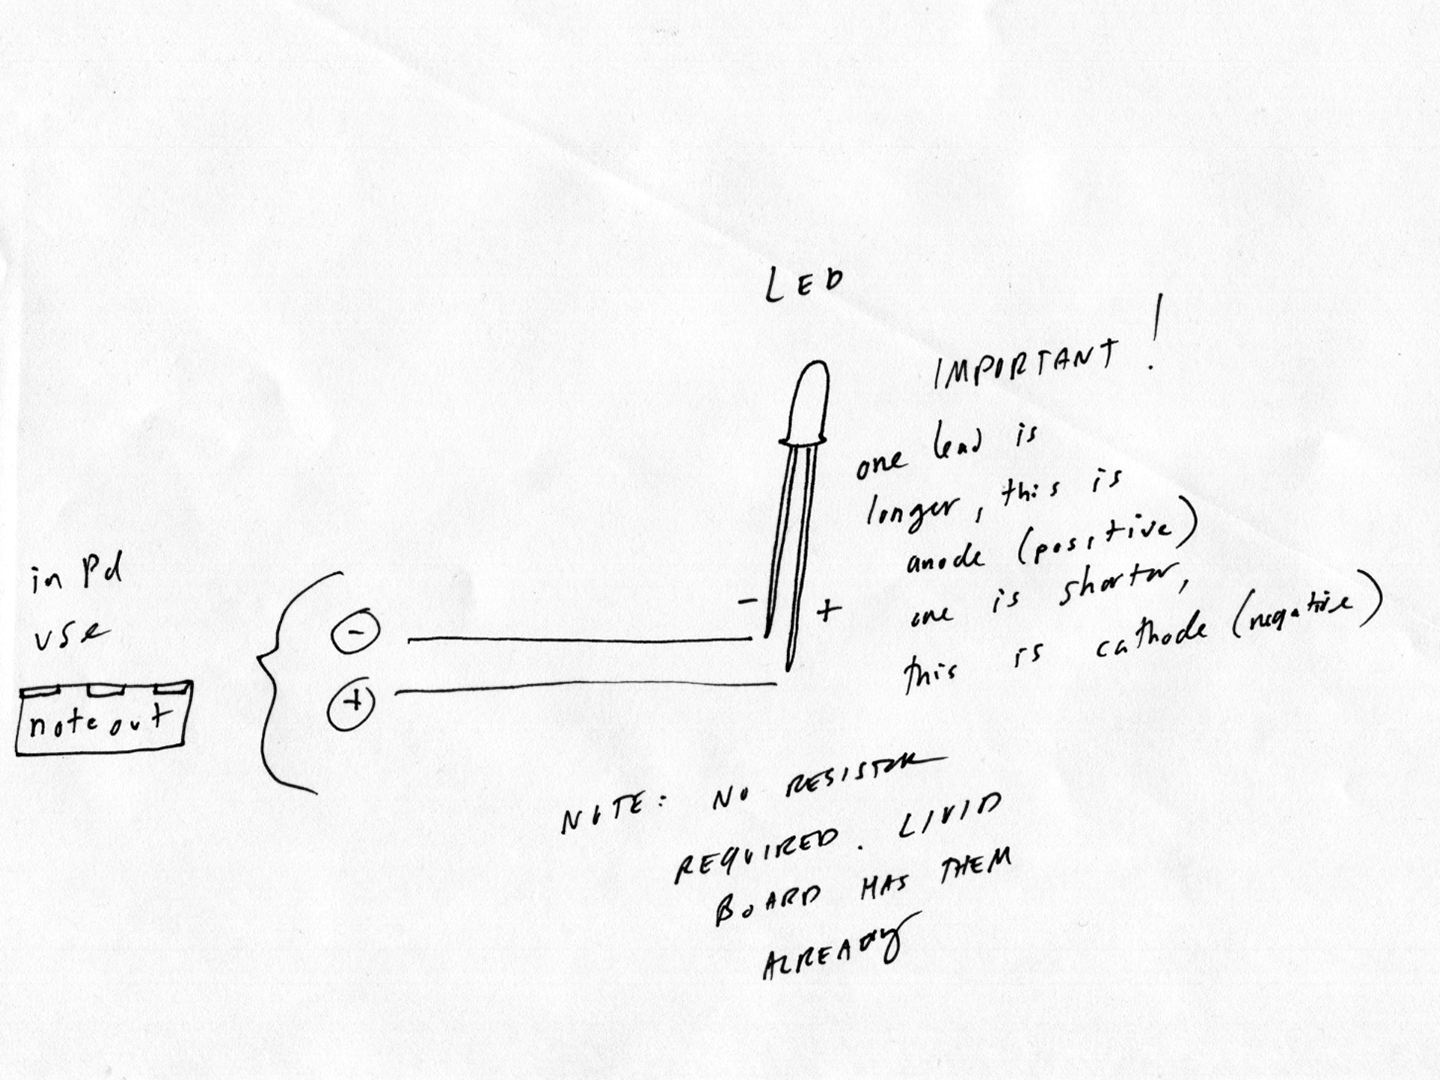 LED
IMPORTANT!
one lead is
longer, this is
anode (positive)
one is shorter,
this is cathode (negative)
in Pd
use
noteout
-
+
-
+
NOTE: NO RESISTOR
REQUIRED. LIVID
BOARD HAS THEM
ALREADY